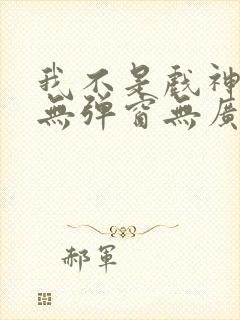 我不是戲神
無彈窗無廣
郝軍